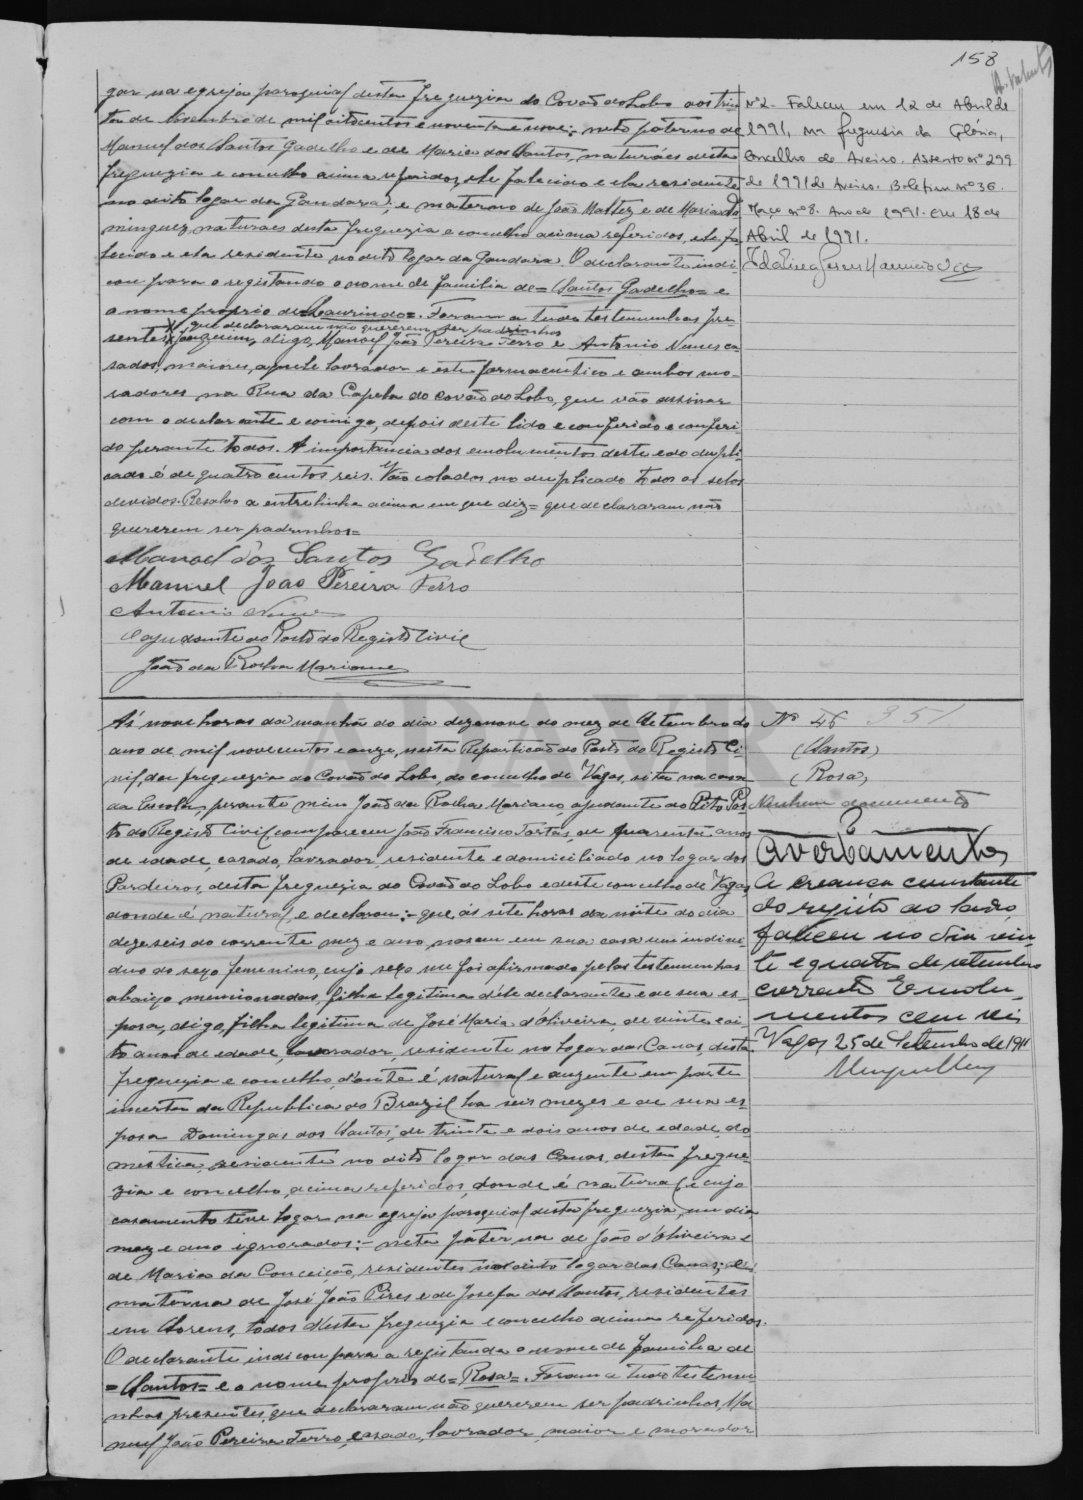 158
gar na egreja paroquial desta freguezia do Covão do Lobo aos trin-
ta de Novembro de mil oitocentos e noventa e nove; neto paterno de
Manuel dos Santos Gadelho e de Maria dos Santos, naturáes desta
freguezia e concelho acima referidos, ele falecido e ela residente
no dito logar da Gandara; e materno de João Mattez e de Maria Do-
minguez, naturaes desta freguezia e concelho acima referidos, ele fa-
lecido e ela residente no dito logar da Gandara. O declarante indi-
cou para o registando o nome de familia de = Santos Gadelho = e
o nome proprio de = Laurindo =. Foram a tudo testemunhas pre-
que declararam não quererem ser padrinhos
sentes, digo, Manoel João Pereira Ferro e Antonio Nunes ca-
sados, maiores, aquele lavrador e este farmaceutico e ambos mo-
radores na Rua da Capela do Covão do Lobo, que vão assinar
com o declarante e comigo, depois deste lido e conferido e conferi-
do perante todos. A importancia dos emolumentos deste e do dupli-
cado é de quatrocentos reis. Vão colados no duplicado todos os selos
devidos. Resalvo a entrelinha acima em que diz = que declararam não
quererem ser padrinhos =
Manoel dos Santos Gadelho
Manuel João Pereira Ferro
Antonio Nunes
O ajudante do Posto do Registo Civil
João da Rocha Mariano
Nº 2 - Faleceu em 12 de Abril de
1991, na freguesia da Glória,
Concelho de Aveiro. Assento nº 299
de 1991 de Aveiro. Boletim nº 36.
Maço nº 8. Ano de 1991. Em 18 de
Abril de 1991.
ADAVR
Ás nove horas da manhã do dia dezanove do mez de Setembro do
ano de mil novecentos e onze, nesta Repartição do Posto do Registo Ci-
vil, da freguezia do Covão do Lobo, do concelho de Vagos, sita na casa
da Escola, perante mim João da Rocha Mariano, ajudante do Dito Pos-
to do Registo Civil compareceu João Francisco Tortas, de quarenta anos
de idade, casado, lavrador, residente e domiciliado no logar dos
Pardeiros, desta freguezia do Covão do Lobo e deste concelho de Vagos,
donde é natural, e declarou: - que ás sete horas da noite do dia
dezeseis do corrente mez e ano, nasceu em sua casa um indivi-
duo do sexo femenino, cujo sexo me foi afirmado pelas testemunhas
abaixo mencionadas, filha legitima d'ele declarante e de sua es-
posa, digo, filha legitima de José Maria d'Oliveira, de vinte e oi-
to anos de edade, lavrador, residente no logar das Canas, desta
freguezia e concelho, d'onde é natural e auzente em parte
incerta da Republica do Brazil ha seis mezes e de sua es-
posa Domingas dos Santos, de trinta e dois anos de edade, do-
mestica, residente no dito logar das Canas, desta fregue-
zia e concelho, acima referidos, donde é natural e cujo
casamento teve logar na egreja paroquial desta freguezia, em dia
mez e ano ignorados: - neta paterna de João d'Oliveira e
de Maria da Conceição, residentes no dito logar das Canas; e
materna de José João Pires e de Josefa dos Santos, residentes
em Sorens, todos d'esta freguezia e concelho acima referidos.
O declarante indicou para a registanda o nome de familia de
= Santos = e o nome proprio de = Rosa =. Foram a tudo testemu-
nhas presentes, que declararam não quererem ser padrinhos, Ma-
nuel João Pereira Ferro, casado, lavrador, maior e morador
Nº 46 351
(Santos)
(Rosa)
Nenhum documento
Averbamento
A creança constante
do registo ao lado,
faleceu no dia vin-
te e quatro de setembro
corrente. Emolu-
mentos cem reis
Vagos, 25 de Setembro de 1911